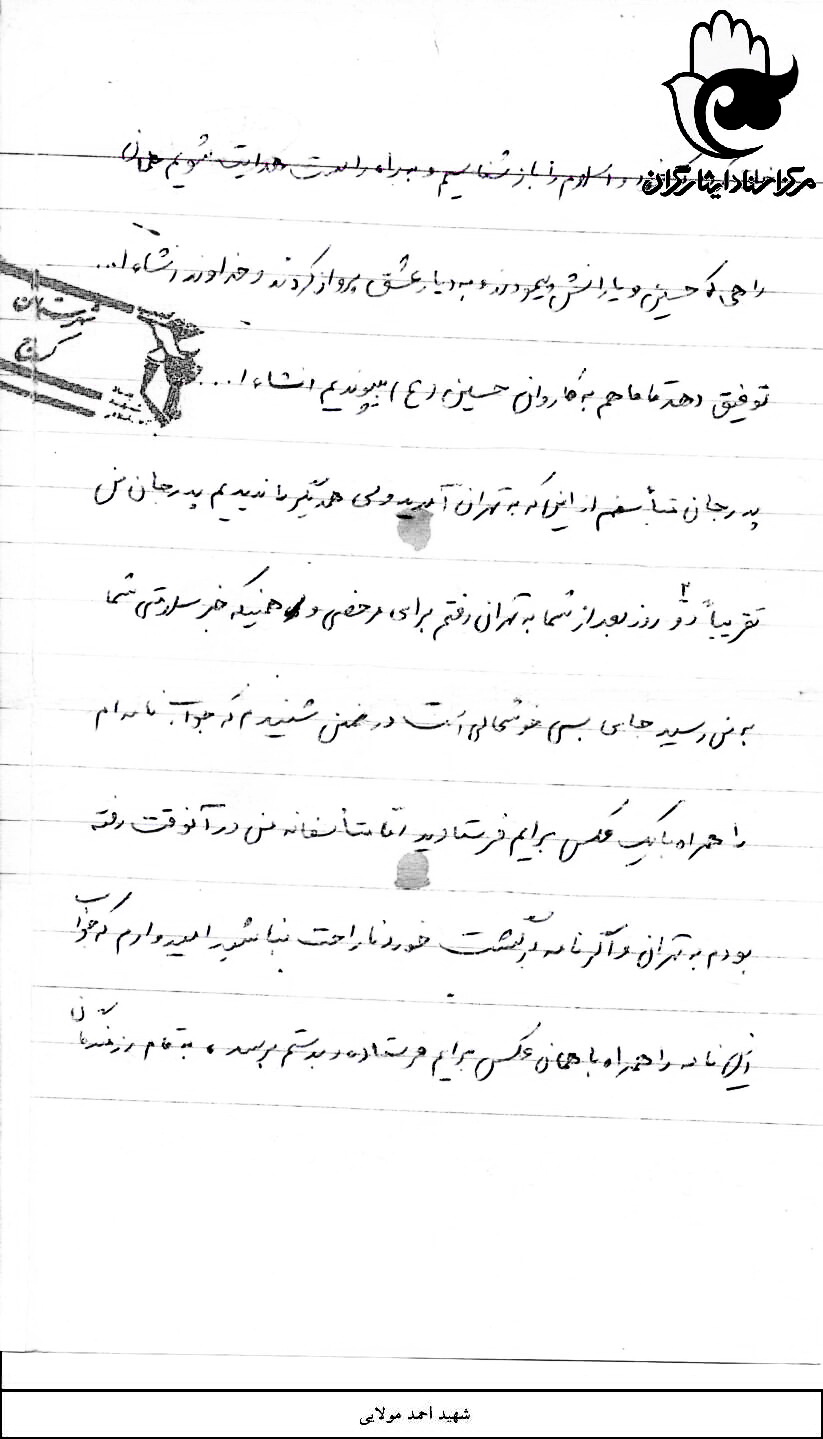 مرکز اسناد ایثارگران
و اسلام را باز شناسیم و به راه راست هدایت شویم همان
راهی که حسین و یارانش پیمودند و به دیار عشق پرواز کردند و خداوند انشاء ا...
توفیق دهد تا ما هم به کاروان حسین (ع) بپیوندیم انشاء ا...
شهرستان
کرج
پدرجان متأسفم از این که به تهران آمدید ولی همدیگر را ندیدیم پدرجان من
تقریباً دو ۲ روز بعد از شما به تهران رفتم برای مرخصی و همینکه خبر سلامتی شما
به من رسید جای بسی خوشحالی است در ضمن شنیدم که جواب نامه ام
را همراه با یک عکس برایم فرستادید امّا متأسفانه من در آنوقت رفته
بودم به تهران و اگر نامه برگشت خورد ناراحت نباشید امیدوارم که جواب
این نامه را همراه با همان عکس برایم فرستاده و بدستم برسد، به تمام رزمندگان
شهید احمد مولایی